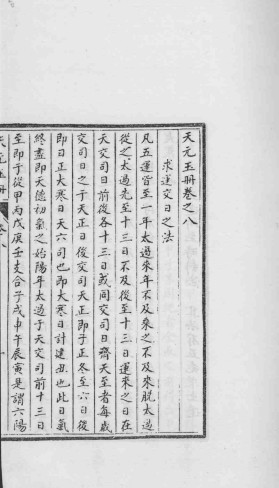 天元玉册卷之八
求運交日之法
凡五運皆至一年太過來年不及乘之不及來脱太過
從之太過先至十三日不及後至十三日運來之日在
天交司日前後各十三日或間交司日齊天至者每歲
交司日之于天正日後交司天正即于正冬至六日後
即日正大寒日天六司也即大寒日計建丑也此日氣
終盡即天德初氣之始陽年太過于天交司前十三日
至即于從甲丙戊庚壬支合子戌申午辰寅是謂六陽
天元玉册 卷八